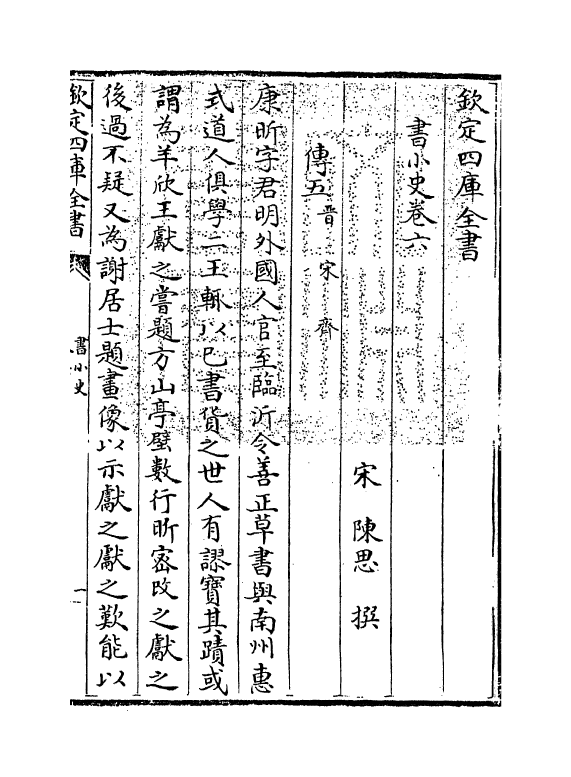 欽定四庫全書
書小史卷六
宋 陳思 撰
傳五晉 宋 齊
康昕字君明外國人官至臨沂令善正草書與南州惠
式道人俱學二王輒以已書貨之世人有謬寳其蹟或
謂為羊欣王獻之嘗題方山亭壁數行昕密改之獻之
後過不疑又為謝居士題畫像以示獻之獻之歎能以
欽定四庫全書
書小史
一